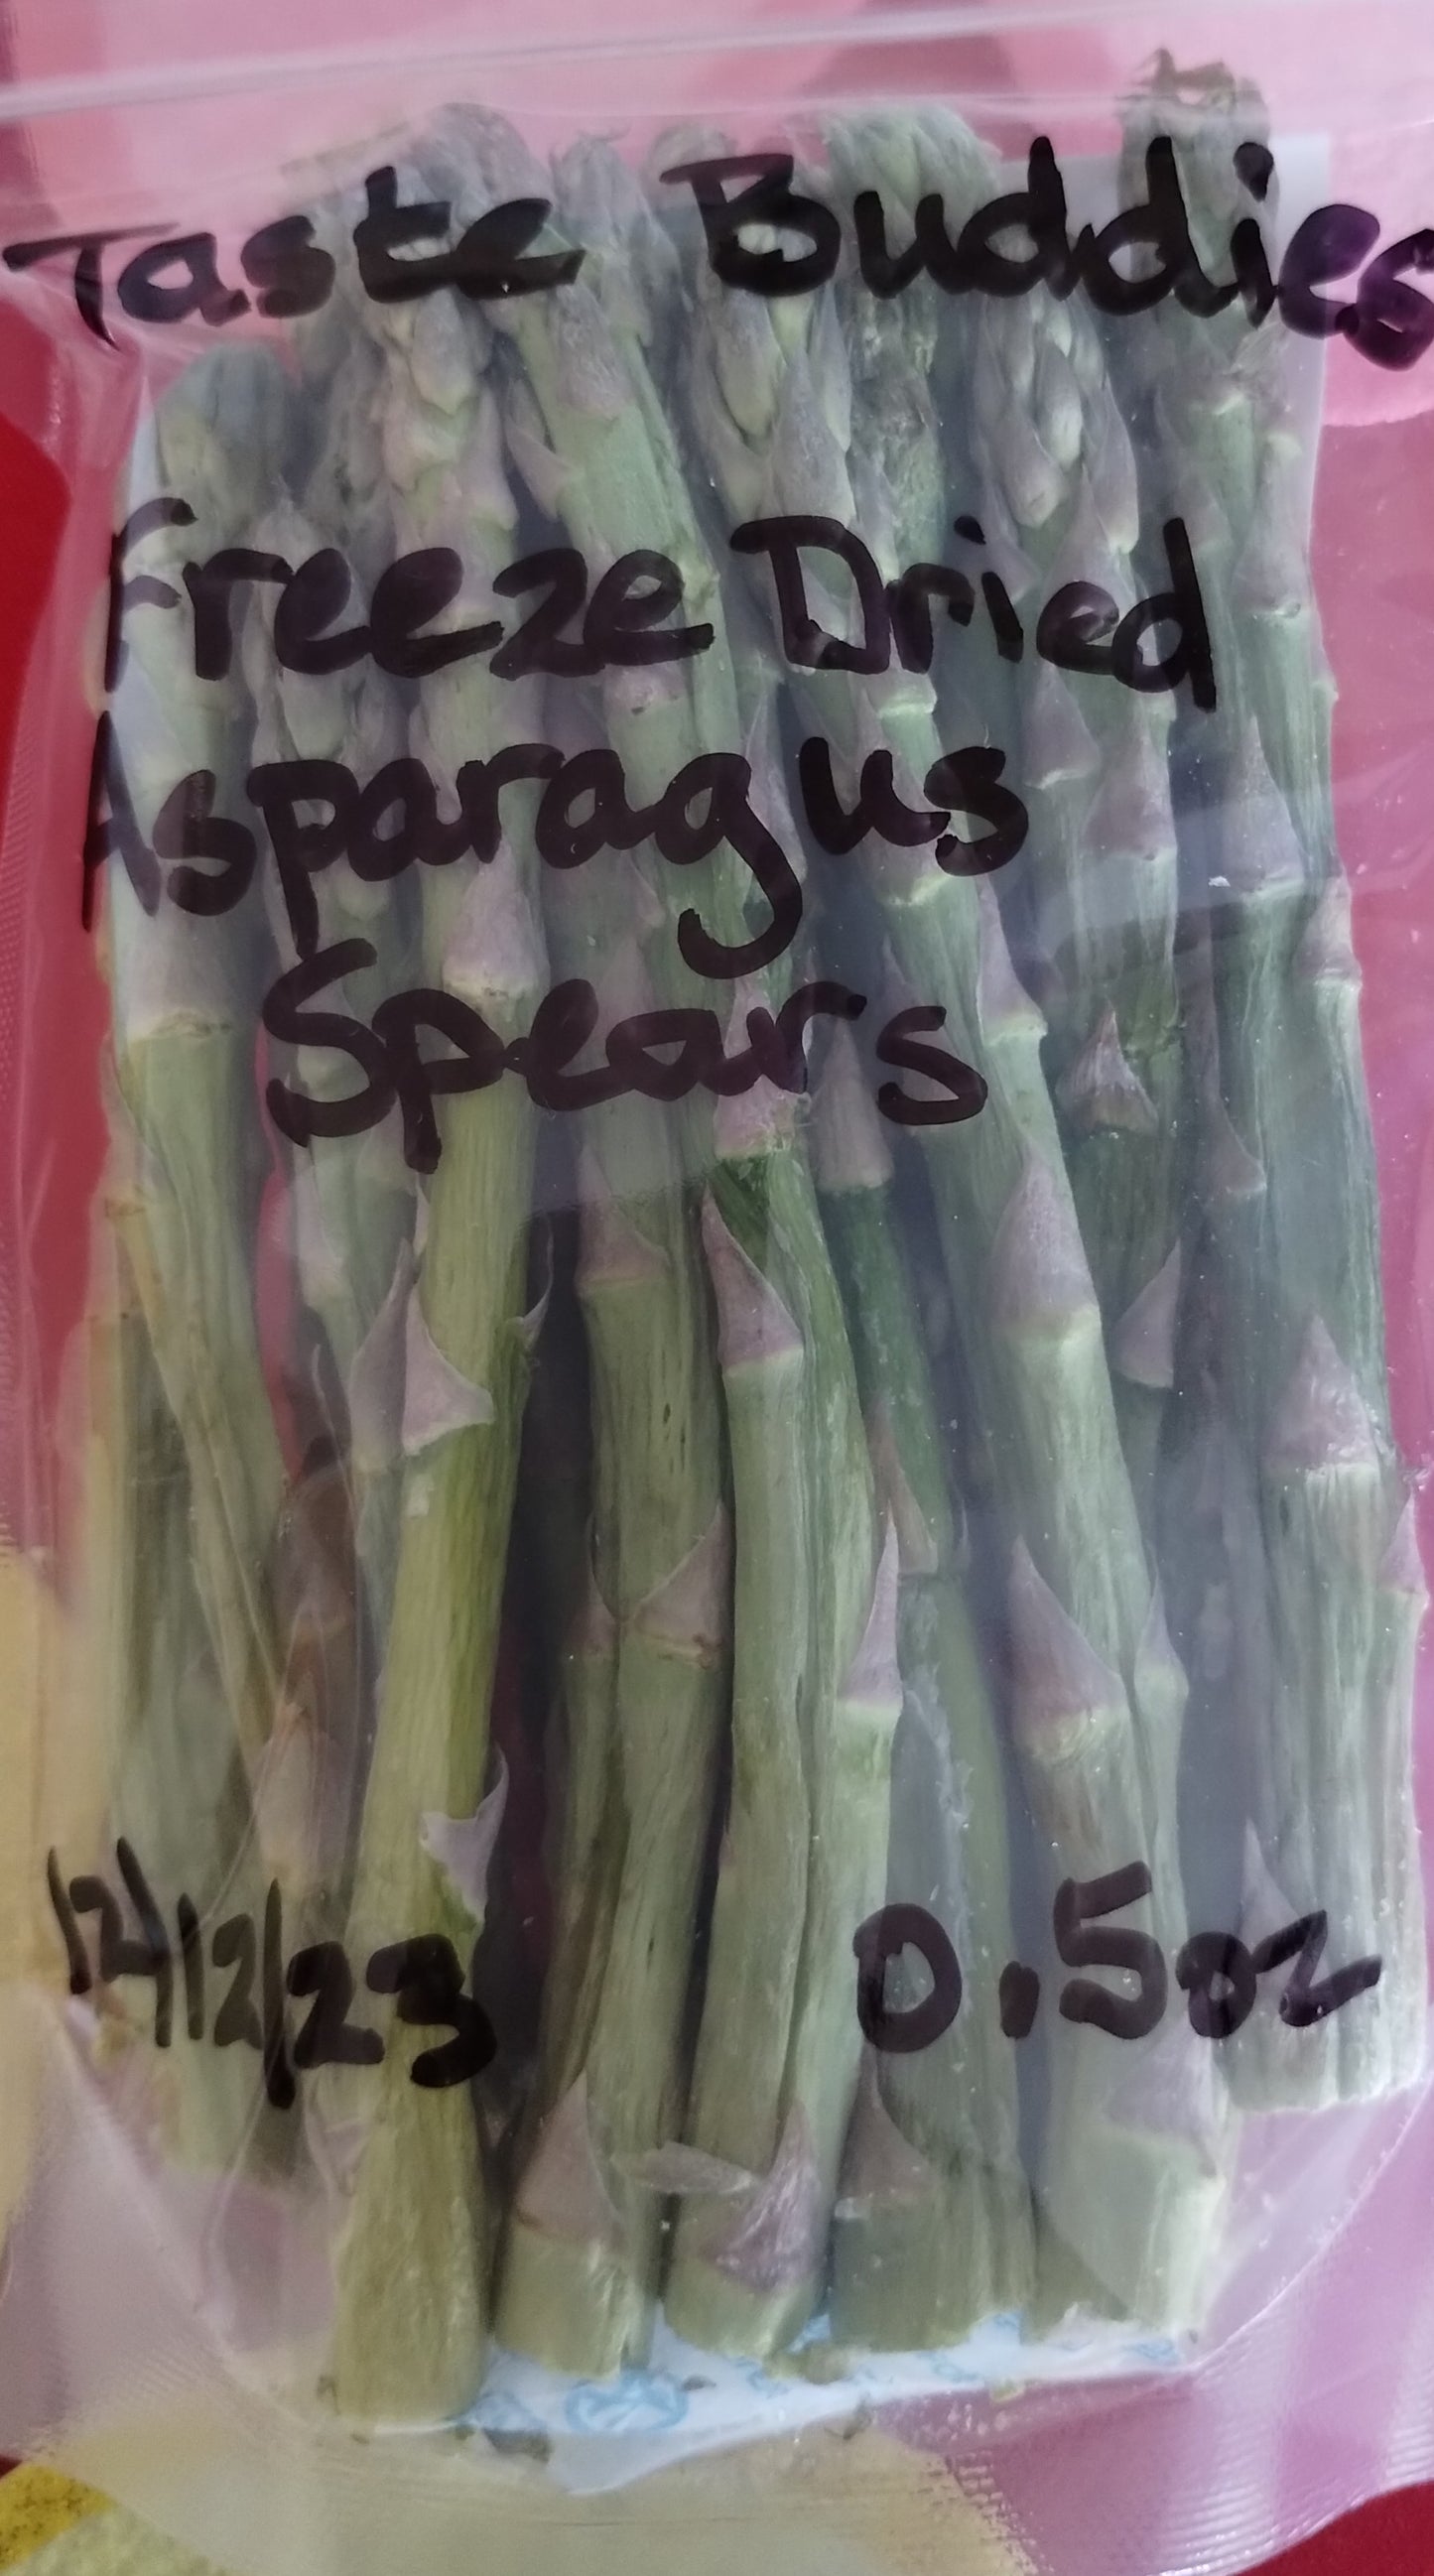 Taste Buddies
Freeze Dried
Asparagus
Spears
12/12/23 0.5oz